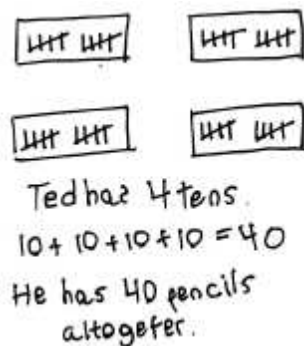 Ted has 4 tens.
10 + 10 + 10 + 10 = 40
He has 40 pencils
altogefer.